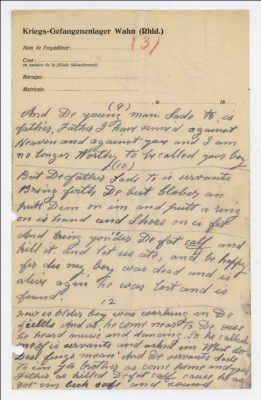 Kriegs-Gefangenenlager Wahn (Rhld.)
(3)
Nom de l'expéditeur:
Cour
ou numéro de la filiale (détachement)
Baraque:
Matricule
(9)
And De young man Sade to is
father, Father I have sinned against
Heaven and against you and I am
no longer Worthy to be called your boy
(10)
But De father Sade to is servants
Bring forth De best clober an
putt Dem on im and putt a ring
on is hand and Shoes on is fet
And bring yonder De fat calf and
kill it. and let us eate, and be happy
for dis my boy was dead and is
alive agen he was lost and is
found.
12
now is older boy was working in De
feelths And as he come near to De ouse
he heard music and dancing. So he called
one of is servants and asked im What do
Dese fings mean And De servants Sade
to im Ya brother as come home and your
father as killed De fat calf cause he as
got im back safe and sound